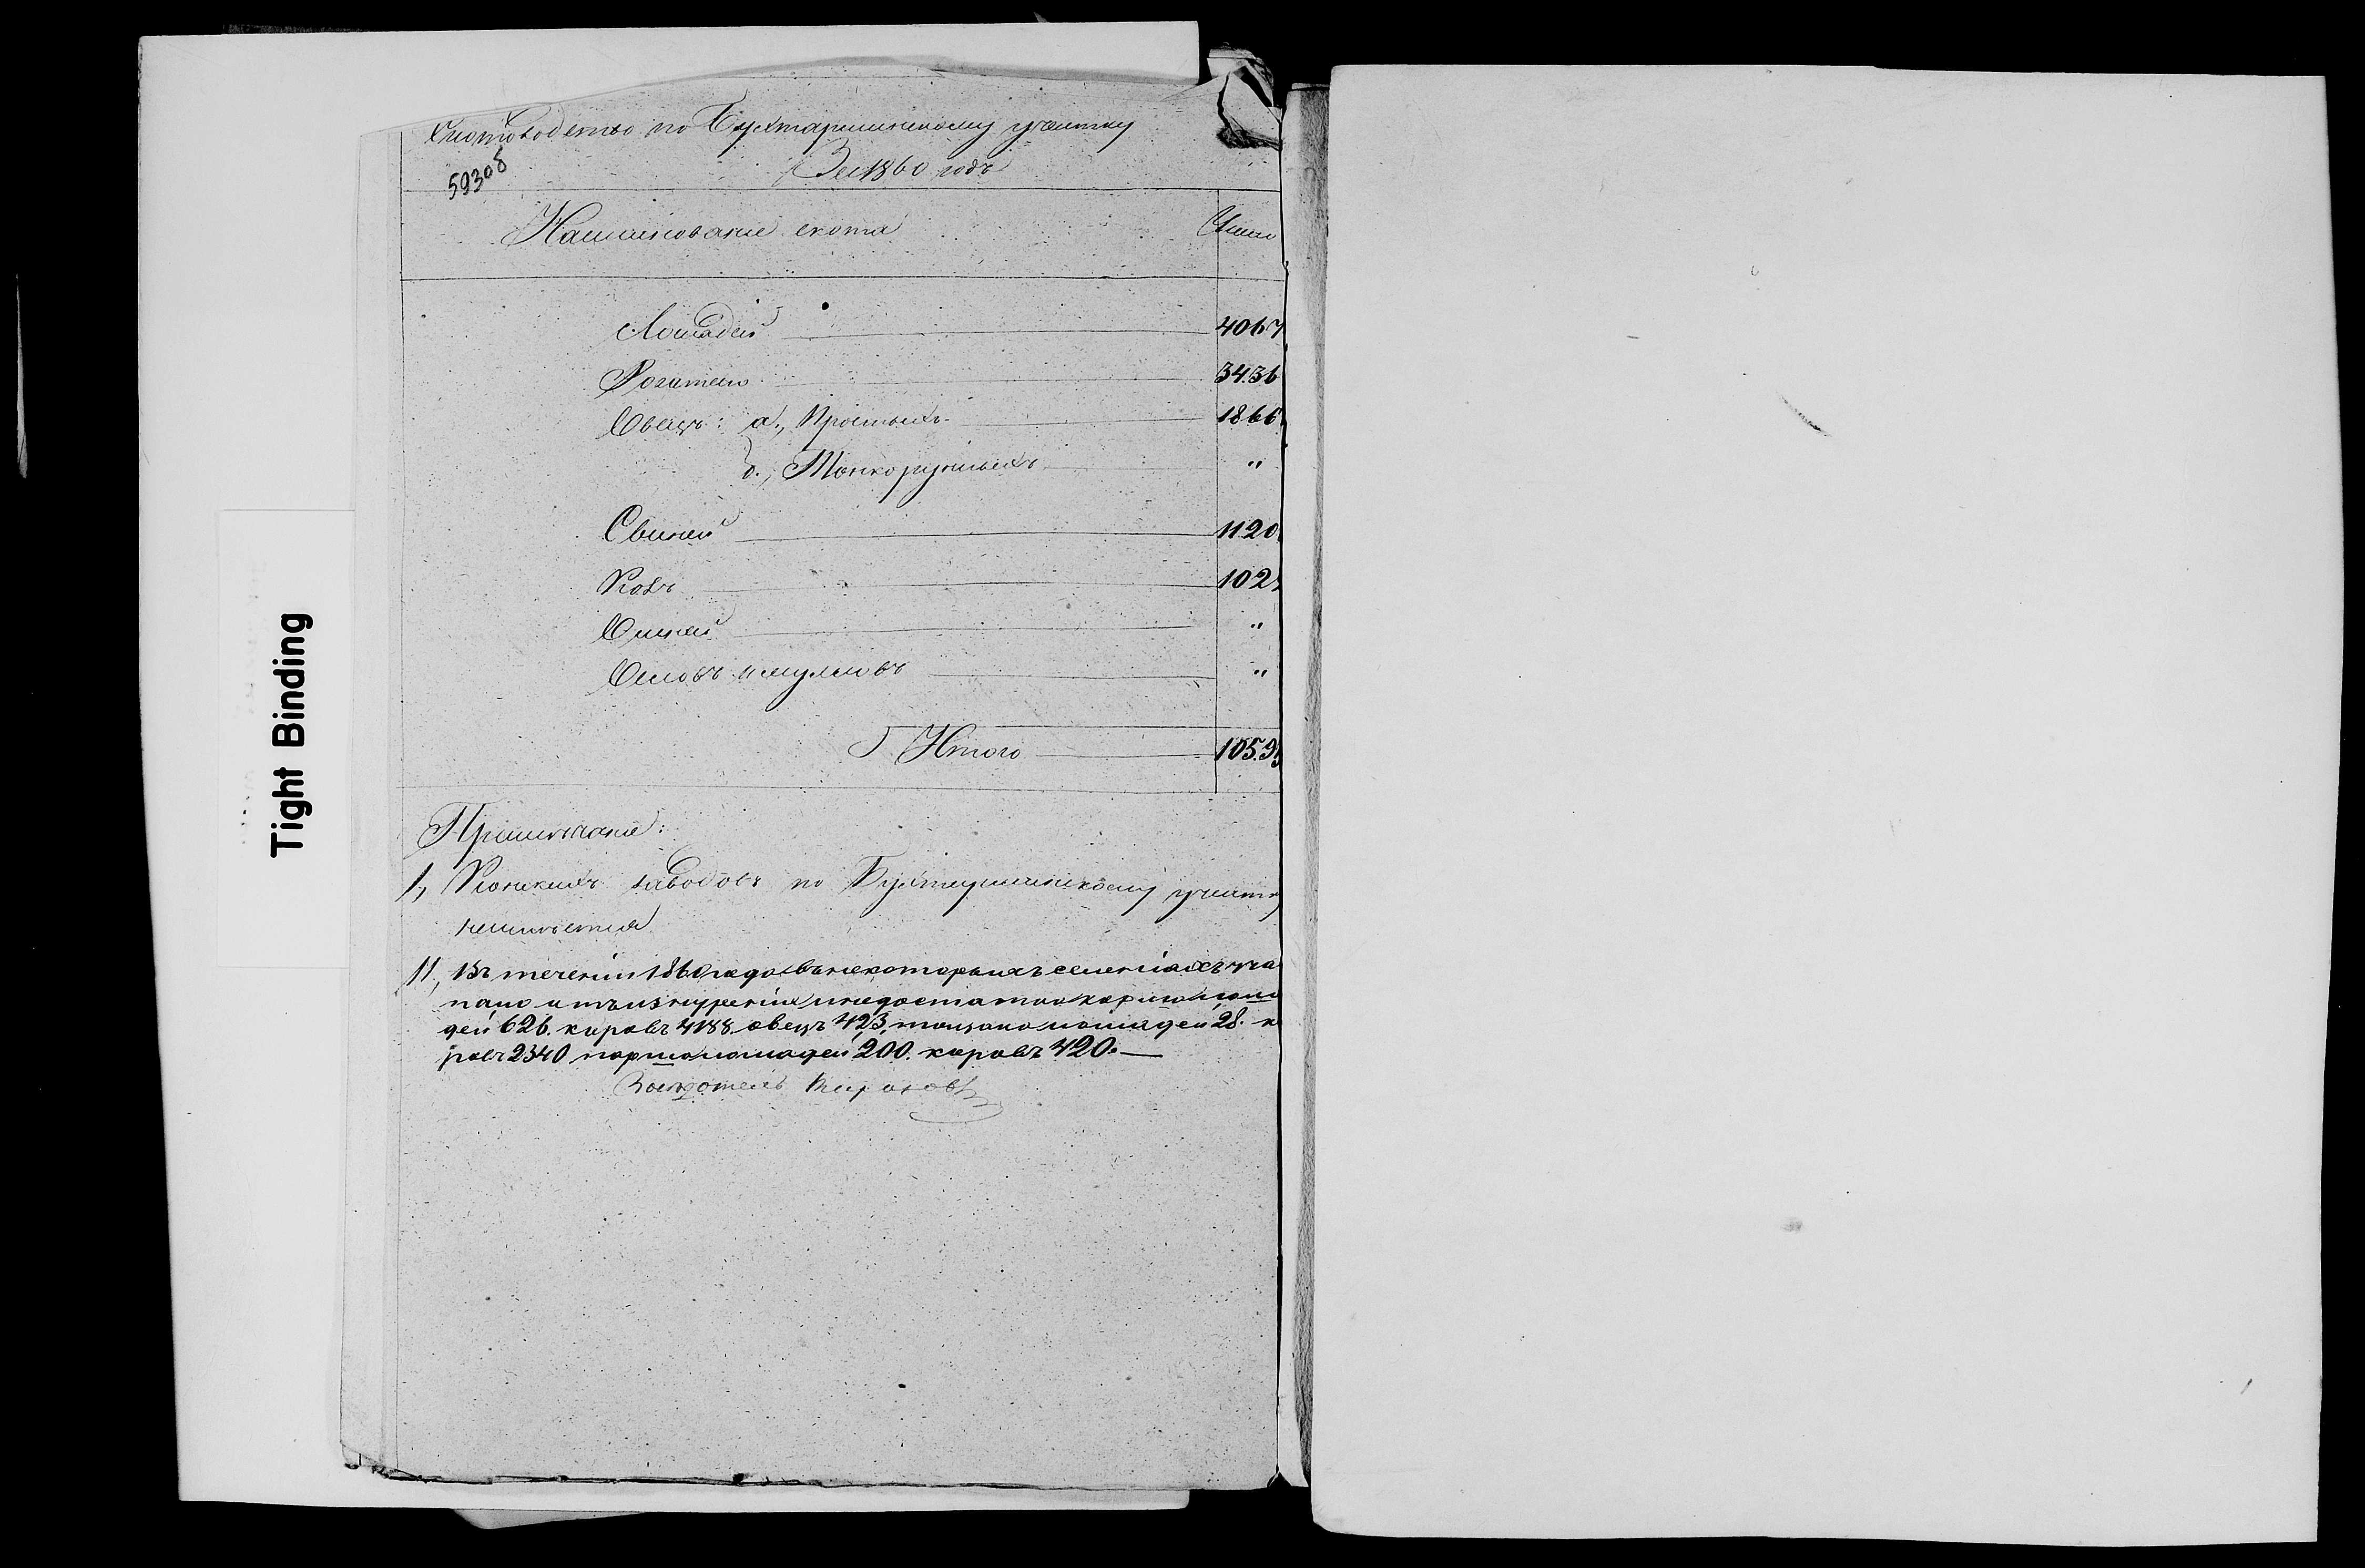 Скотоводство по Бухтарминскому участку
За 1860 годъ
59308
Наименованіе скота
Число
Лошадей 4067
Рогатаго 3436
Овецъ: а., Простыхъ 1866
б., Тонкорунныхъ "
Свиней 1120
Козъ 102
Оленей "
Ословъ и муловъ "
Итого 1059
Примѣчаніе:
1, Конскихъ заводовъ по Бухтарминскому участку
неимѣется
11, Въ теченіи 1860 года въ некоторыхъ селеніахъ упа
пало отъ изнуренія и недостатка корму лоша
дей 626. коровъ 4188. овецъ 423, лошадей 28. ко
ровъ 2340 лошадей 200. коровъ 420.—
Засѣдатель
Tight Binding